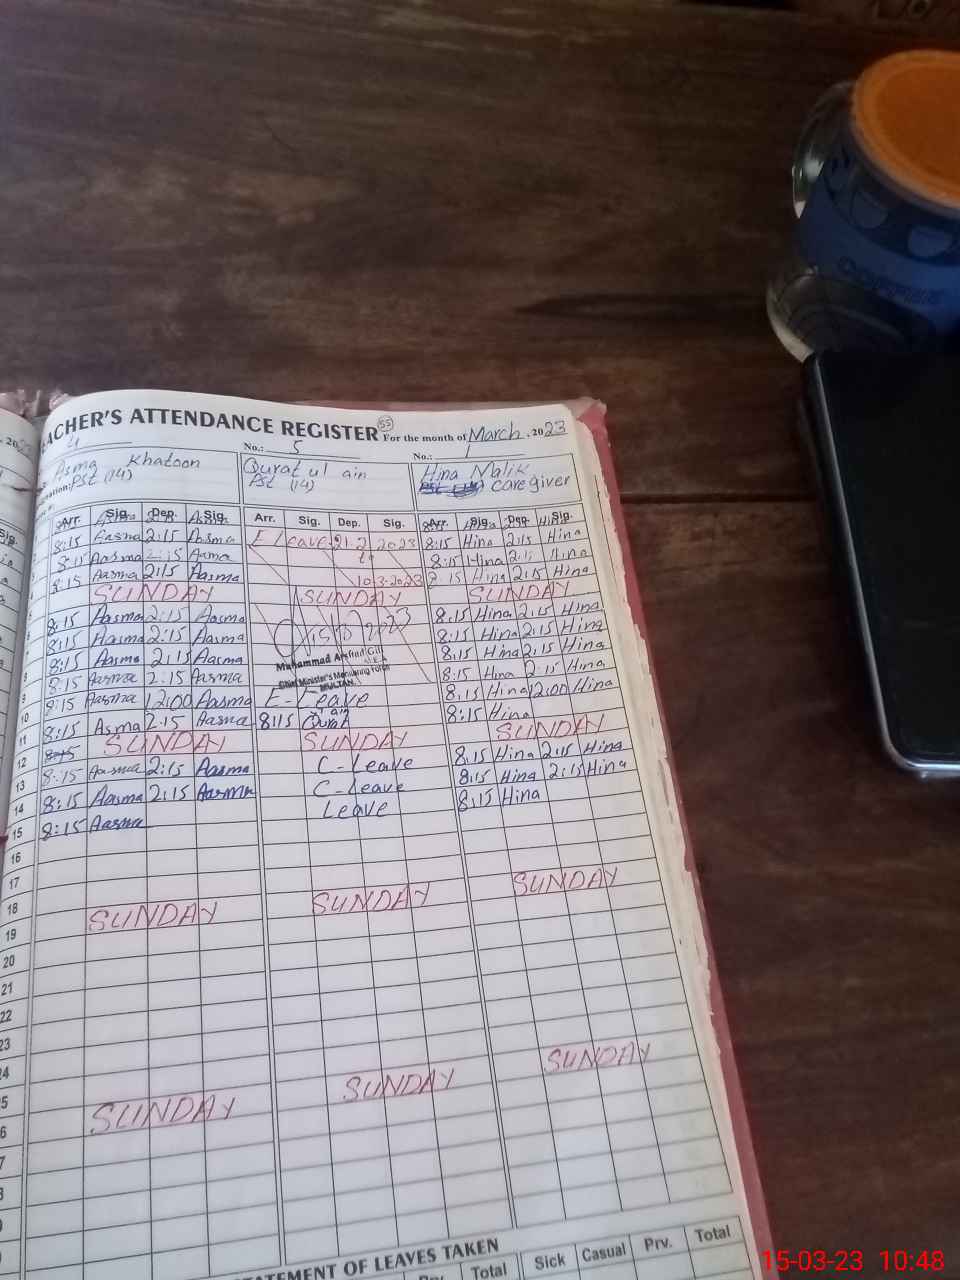 TEACHER'S ATTENDANCE REGISTER 55 For the month of March, 2023
4 No.: 5 No.: 1
Asma Khatoon Qurat ul ain Hina Malik
PST (14) PST (14) caregiver
Arr. Sig. Dep. Sig. Arr. Sig. Dep. Sig. Arr. Sig. Dep. Sig.
8:15 Aasma 2:15 Aasma E Leave 21-2-2023 8:15 Hina 2:15 Hina
8:15 Aasma 2:15 Aasma to 8:15 Hina 2:15 Hina
8:15 Aasma 2:15 Aasma 10-3-2023 8:15 Hina 2:15 Hina
SUNDAY SUNDAY SUNDAY
8:15 Aasma 2:15 Aasma 8:15 Hina 2:15 Hina
8:15 Aasma 2:15 Aasma 8:15 Hina 2:15 Hina
8:15 Aasma 2:15 Aasma Muhammad Arshad Gill 8:15 Hina 2:15 Hina
8:15 Aasma 2:15 Aasma Chief Minister's Monitoring Force 8:15 Hina 2:15 Hina
MULTAN
9 8:15 Aasma 12:00 Aasma E-Leave 8:15 Hina 12:00 Hina
10 8:15 Asma 2:15 Aasma 8:15 Qurat ain 8:15 Hina
11 SUNDAY SUNDAY SUNDAY
12 8:15 Aasma 2:15 Aasma C-Leave 8:15 Hina 2:15 Hina
13 8:15 Aasma 2:15 Aasma C-Leave 8:15 Hina 2:15 Hina
14 8:15 Aasma Leave 8:15 Hina
15
16
17
18 SUNDAY SUNDAY SUNDAY
19
20
21
22
23
24
25 SUNDAY SUNDAY SUNDAY
26
STATEMENT OF LEAVES TAKEN
Prv. Total Sick Casual Prv. Total
COFFEE
15-03-23 10:48